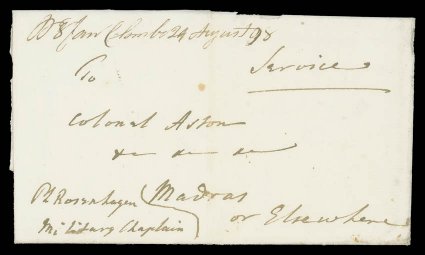 Colombo 24 August 98
To
Service
Colonel Aston
Madras
or Elsewhere
Pl Rosenhagen
Military Chaplain